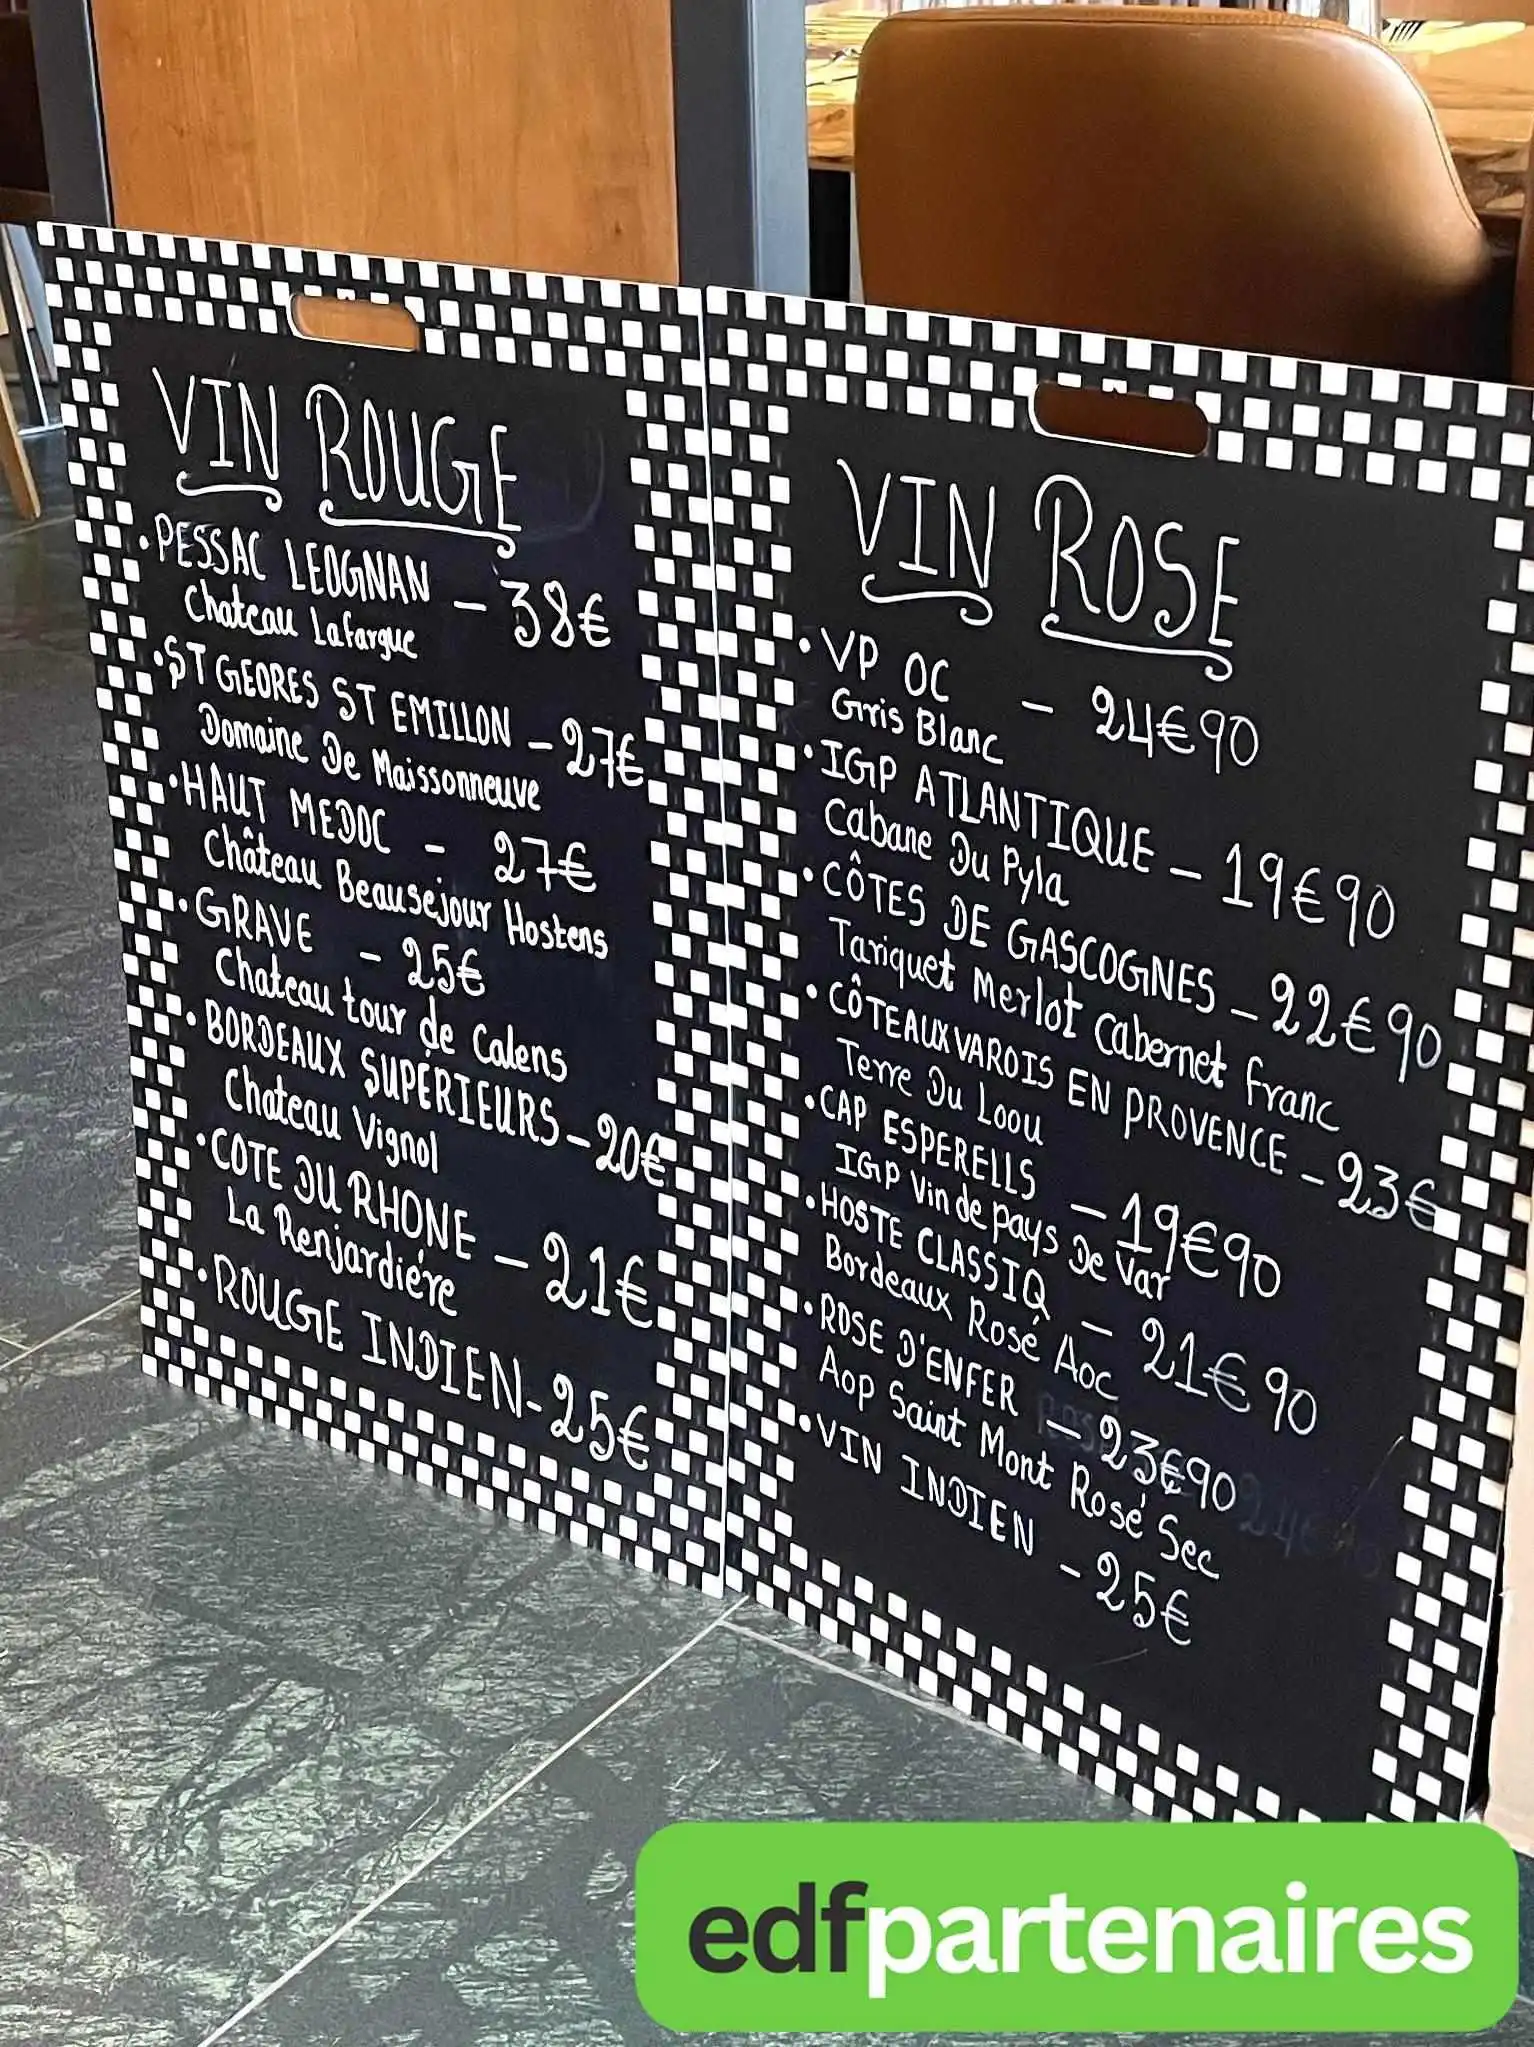 VIN ROUGE
• PESSAC LEOGNAN - 38€
Chateau Lafargue
• ST GEORES ST EMILLON - 27€
Domaine De Maissonneuve
• HAUT MEDOC - 27€
Château Beausejour Hostens
• GRAVE - 25€
Chateau tour de Calens
• BORDEAUX SUPÉRIEURS - 20€
Chateau Vignol
• COTE DU RHONE - 21€
La Renjardiére
• ROUGE INDIEN - 25€
VIN ROSE
• VP OC - 24€90
Gris Blanc
• IGP ATLANTIQUE - 19€90
Cabane Du Pyla
• CÔTES DE GASCOGNES - 22€90
Tariquet Merlot Cabernet franc
• CÔTEAUX VAROIS EN PROVENCE - 23€
Terre Du Loou
• CAP ESPERELLS - 19€90
IGP Vin de pays De Var
• HOSTE CLASSIQ - 21€90
Bordeaux Rosé Aoc
• ROSE D'ENFER - 23€90
Aop Saint Mont Rosé Sec
• VIN INDIEN - 25€
edfpartenaires